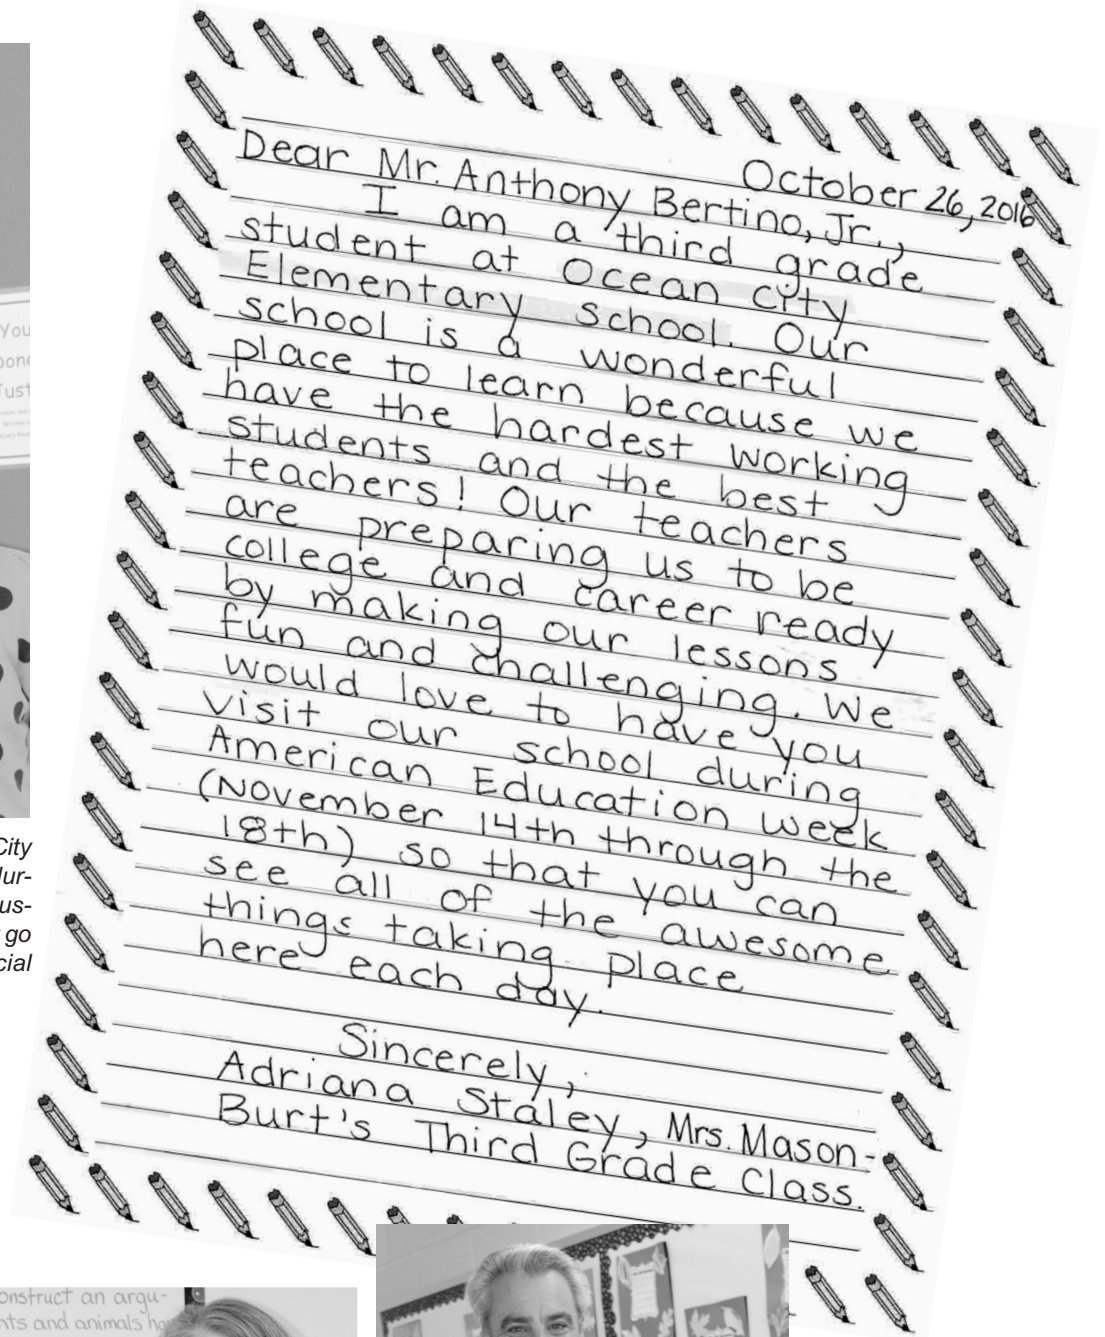 October 26, 2016
Dear Mr. Anthony Bertino, Jr.,
I am a third grade
student at Ocean city
Elementary school. Our
school is a wonderful
place to learn because we
have the hardest working
students and the best
teachers! Our teachers
are preparing us to be
college and career ready
by making our lessons
fun and challenging. We
would love to have you
visit our school during
American Education week
(November 14th through the
18th) so that you can
see all of the awesome
things taking place
here each day.
Sincerely,
Adriana Staley, Mrs. Mason-
Burt's Third Grade Class.
You
City
dur-
us-
go
cial
onstruct an argu-
nts and animals ha